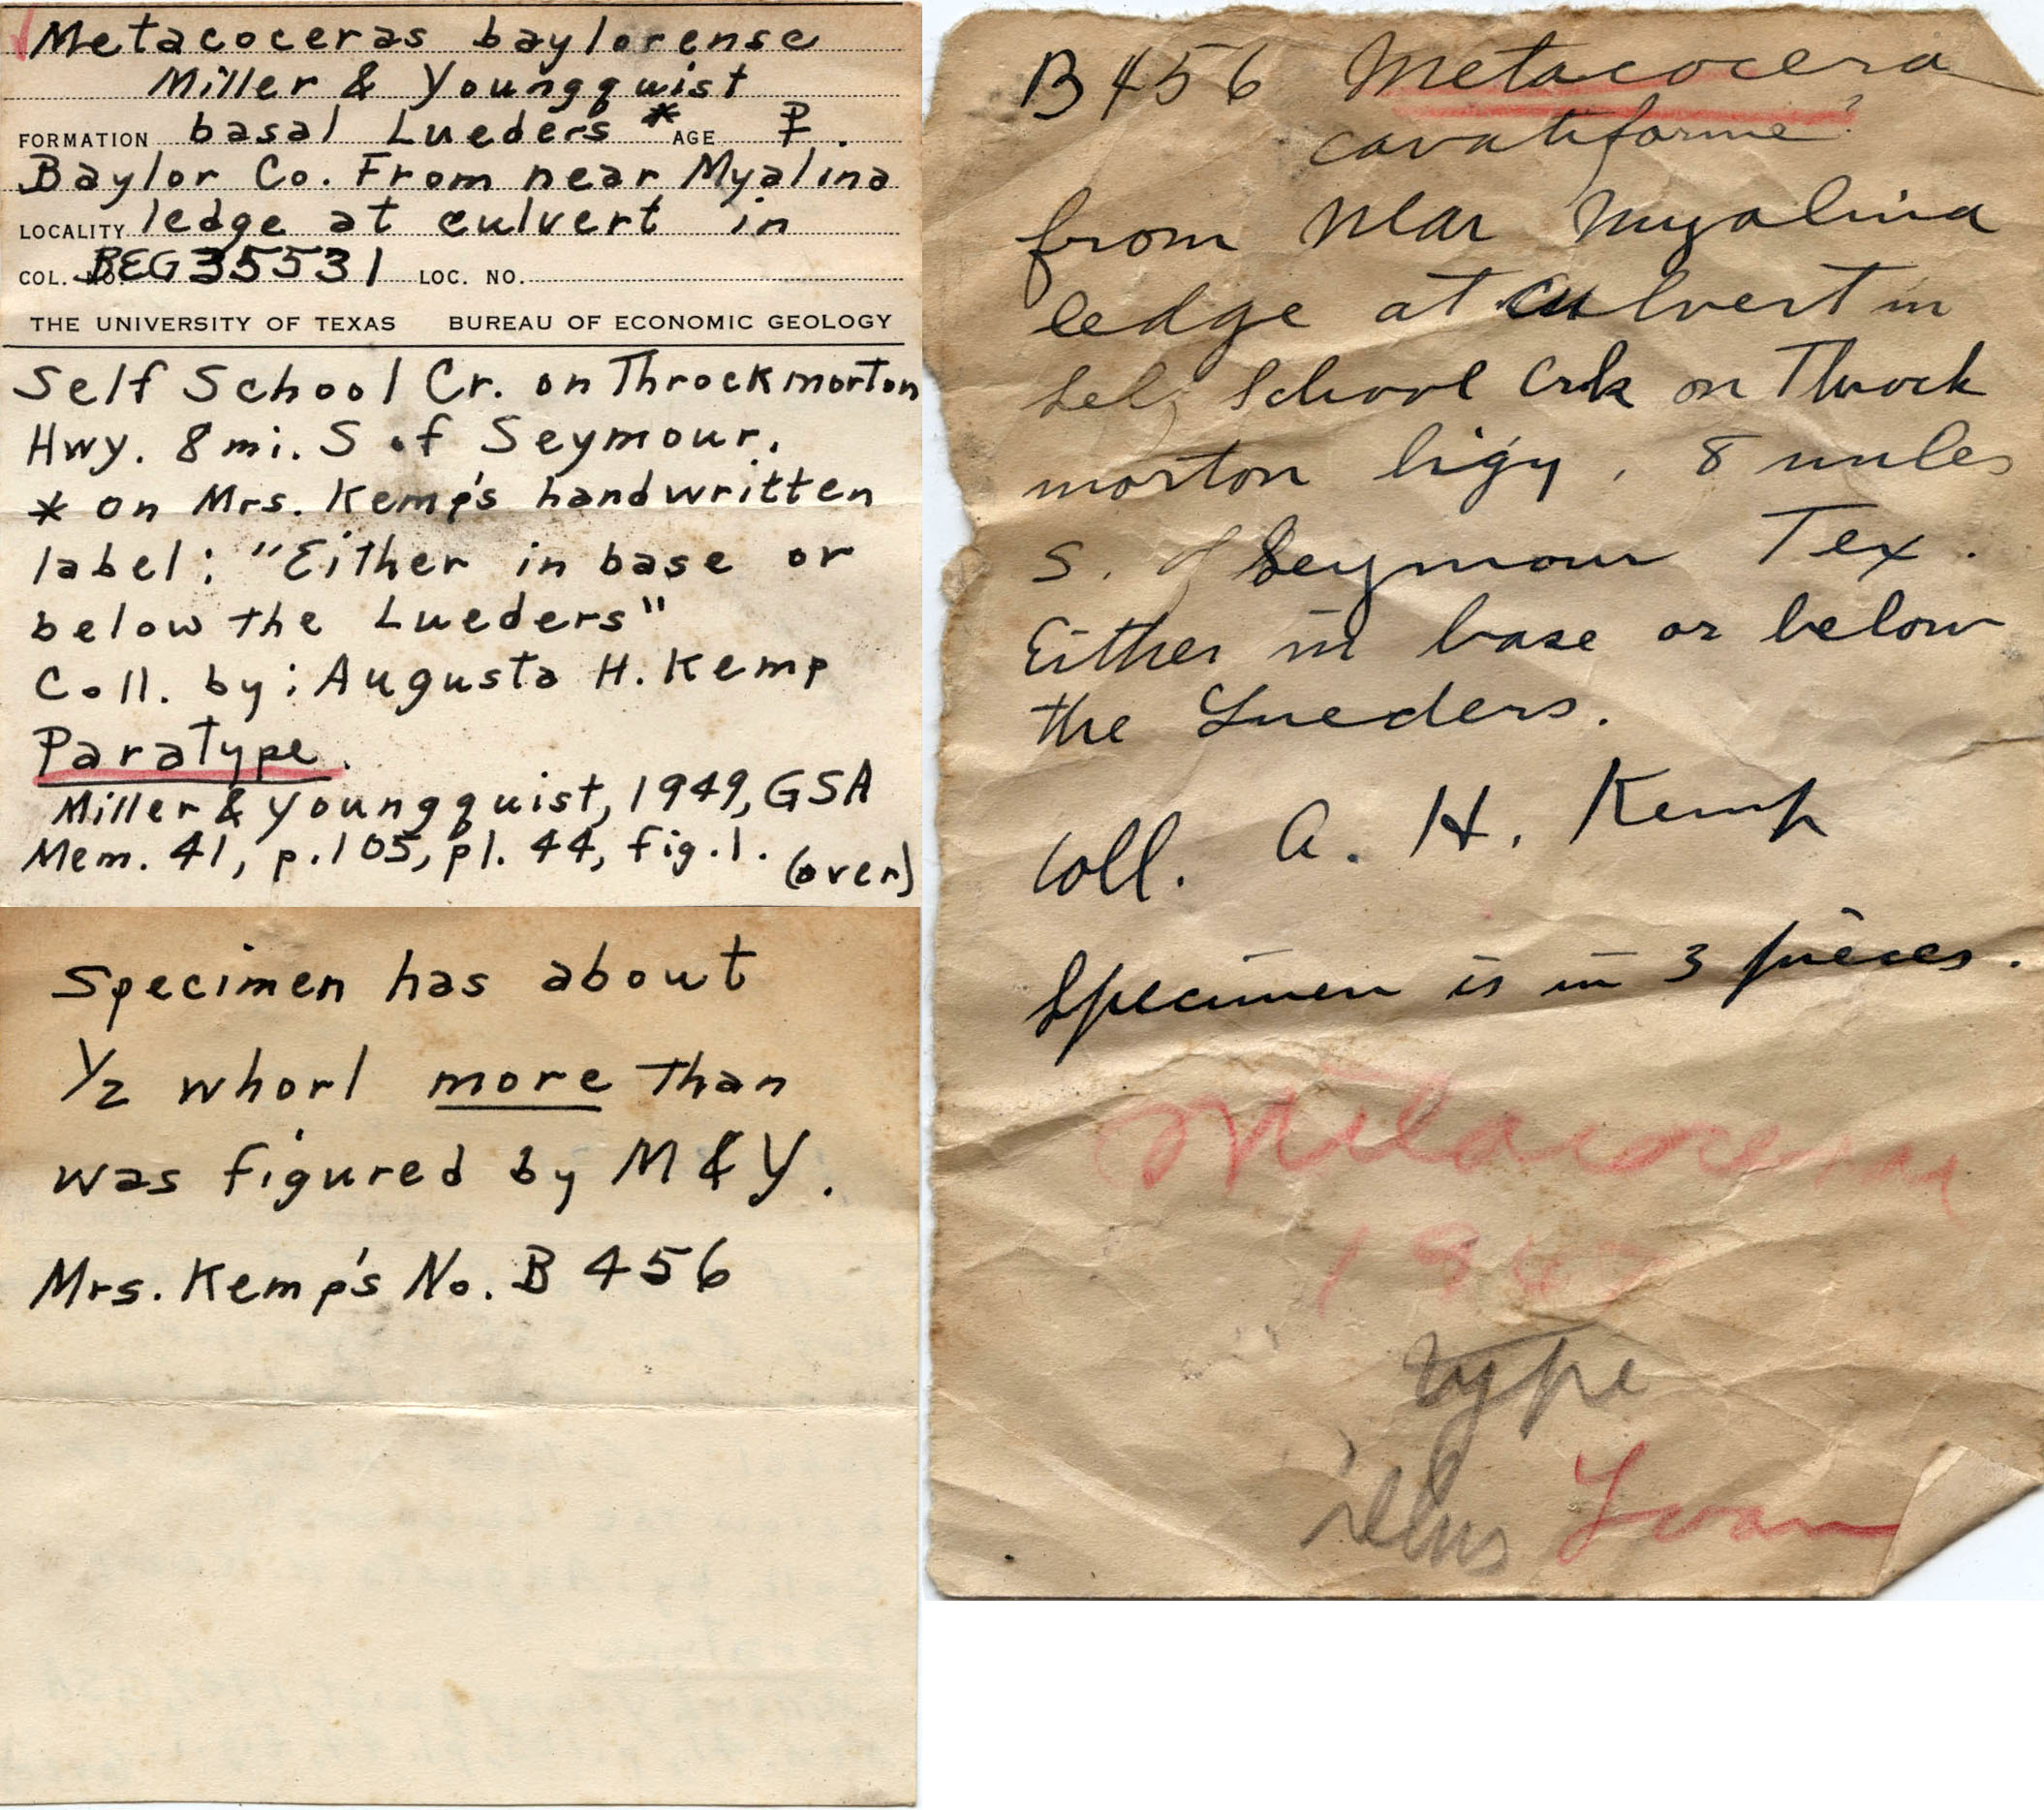 Metacoceras baylorense
Miller & Youngquist
FORMATION basal Lueders * AGE P.
Baylor Co. From near Myalina
LOCALITY ledge at culvert in
COL. NO. BEG 35531 LOC. NO.
THE UNIVERSITY OF TEXAS BUREAU OF ECONOMIC GEOLOGY
Self School Cr. on Throckmorton
Hwy. 8 mi. S of Seymour.
* on Mrs. Kemp's handwritten
label: "Either in base or
below the Lueders"
Coll. by: Augusta H. Kemp
Paratype.
Miller & Youngquist, 1949, GSA
Mem. 41, p. 105, pl. 44, fig. 1. (over)
Specimen has about
1/2 whorl more than
was figured by M & Y.
Mrs. Kemp's No. B 456
B 456 Metacocera
cavatiforme?
from near Myalina
ledge at culvert in
Self School Crk on Throck
morton higy, 8 miles
S. of Seymour Tex.
Either in base or below
the Lueders.
Coll. A. H. Kemp
Specimen is in 3 pieces.
type
illus